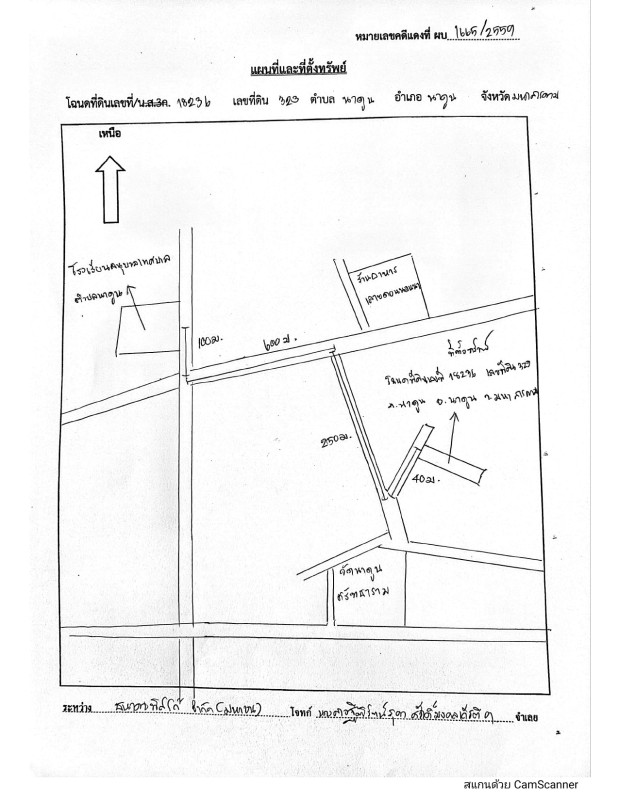 หมายเลขคดีแดงที่ ผบ. 1665/2559
แผนที่และที่ตั้งทรัพย์
โฉนดที่ดินเลขที่/น.ส.3ค. 18236 เลขที่ดิน 323 ตำบล นาดูน อำเภอ นาดูน จังหวัด มหาสารคาม
เหนือ
โรงเรียนอนุบาลเทศบาล
ตำบลนาดูน
ร้านอาหาร
100ม.
600ม.
ที่ตั้งทรัพย์
โฉนดที่ดินเลขที่ 18236 เลขที่ดิน 323
ต.นาดูน อ.นาดูน จ.มหาสารคาม
250ม.
40ม.
วัดนาดูน
ศรัทธาราม
ระหว่าง ธนาคารทิสโก้ จำกัด (มหาชน) โจทก์ จำเลย
สแกนด้วย CamScanner